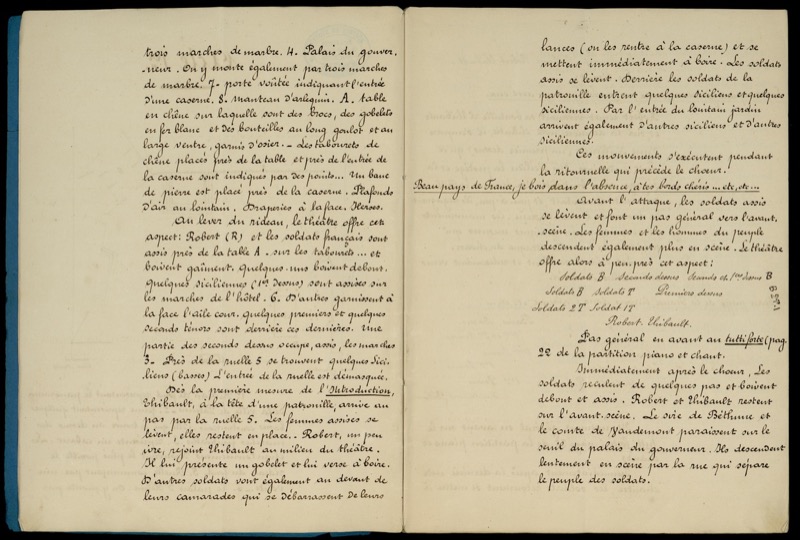 trois marches de marbre. 4. Palais du gouver-
neur. On y monte également par trois marches
de marbre. 7. porte voûtée indiquant l'entrée
d'une caserne. 8. manteau d'arlequin. A. table
en chêne sur laquelle sont des brocs, des gobelets
en fer blanc et des bouteilles au long goulot et au
large ventre, garnis d'osier. - Les tabourets de
chêne placés près de la table et près de l'entrée de
la caserne sont indiqués par des points... Un banc
de pierre est placé près de la caserne. Plafonds
d'air au lointain. Draperies à la face. Herses.
Au lever du rideau, le théâtre offre cet
aspect: Robert (R) et les soldats français sont
assis près de la table A. sur les tabourets ... et
boivent gaîment. Quelques-uns boivent debout.
Quelques siciliennes (1ers Dessus) sont assises sur
les marches de l'hôtel. 6. D'autres garnissent à
la face l'aile cour. quelques premiers et quelques
seconds ténors sont derrière ces dernières. Une
partie des seconds dessus occupe, assis, les marches
3. Près de la ruelle 5 se trouvent quelques Sici-
liens (basses) L'entrée de la ruelle est démasquée.
Dès la première mesure de l'Introduction,
Thibault, à la tête d'une patrouille, arrive au
pas par la ruelle 5. Les femmes assises se
lèvent, elles restent en place. - Robert, un peu
ivre, rejoint Thibault au milieu du théâtre.
Il lui présente un gobelet et lui verse à boire.
D'autres soldats vont également au devant de
leurs camarades qui se débarrassent de leurs
lances (on les rentre à la caserne) et se
mettent immédiatement à boire. Les soldats
assis se lèvent. Derrière les soldats de la
patrouille entrent quelques siciliens et quelques
siciliennes. Par l'entrée du lointain jardin
arrivent également d'autres siciliens et d'autres
siciliennes.
Ces mouvements s'exécutent pendant
la ritournelle qui précède le chœur.
Beau pays de France, je bois dans l'absence, à tes bords chéris ... etc, etc ...
Avant l'attaque, les soldats assis
se lèvent et font un pas général vers l'avant-
scène. Les femmes et les hommes du peuple
descendent également plus en scène. Le théâtre
offre alors à peu près cet aspect:
Soldats B seconds dessus Seconds et 1ers dessus B
Soldats B Soldats T Premiers dessus
Soldats 2 T Soldat 1 T
Robert. Thibault.
Pas général en avant au tutti forte (pag.
22 de la partition piano et chant.
Immédiatement après le chœur, Les
soldats reculent de quelques pas et boivent
debout et assis. Robert et Thibault restent
sur l'avant-scène. Le sire de Béthune et
le comte de Vaudemont paraissent sur le
seuil du palais du gouverneur. Ils descendent
lentement en scène par la rue qui sépare
le peuple des soldats.